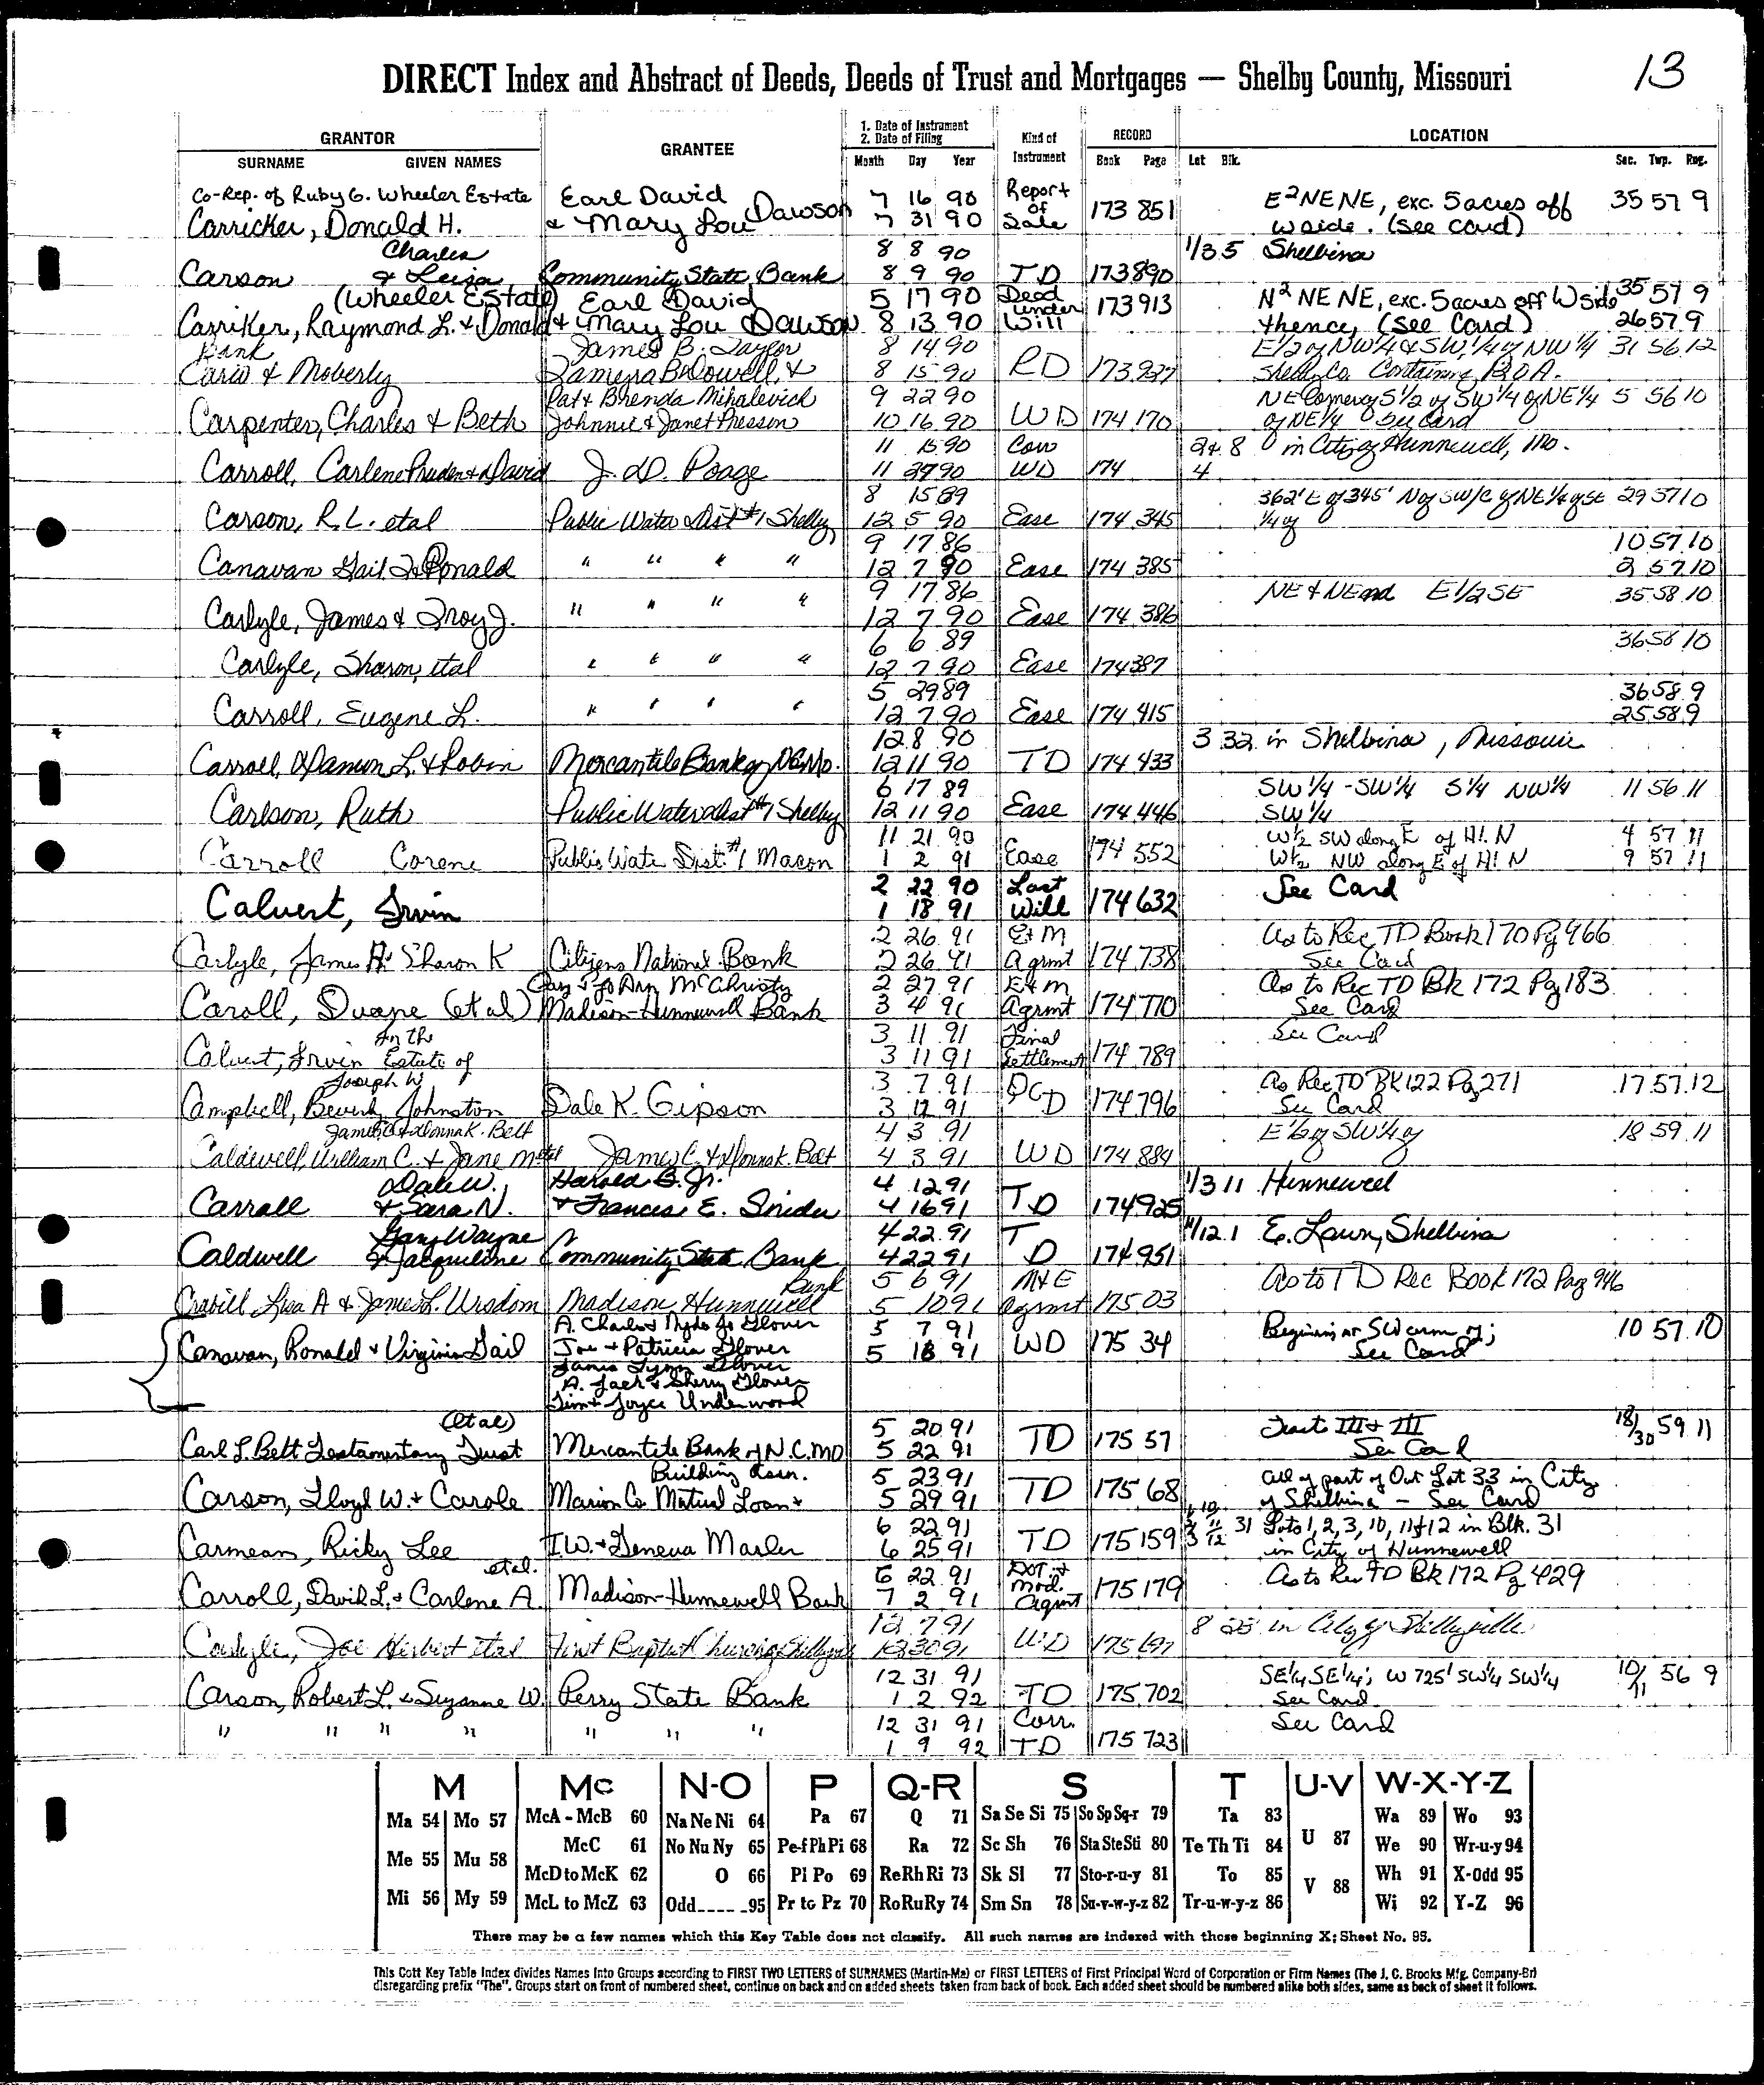 13
DIRECT Index and Abstract of Deeds, Deeds of Trust and Mortgages — Shelby County, Missouri
GRANTOR GRANTEE 1. Date of Instrument 2. Date of Filing Kind of Instrument RECORD LOCATION
SURNAME GIVEN NAMES Month Day Year Book Page Lot Blk. Sec. Twp. Rng.
Co-Rep. of Ruby G. Wheeler Estate Earl David 7 16 90 Report of E²NENE, exc. 5 acres off 35 57 9
Carricker, Donald H. & Mary Lou Dawson 7 31 90 Sale 173 851 W side. (see card)
Charles 8 8 90 1/3 5 Shelbina
Carson & Leisa Community State Bank 8 9 90 TD 173 890
(Wheeler Estate) Earl David 5 17 90 Deed under 173 913 N² NE NE, exc. 5 acres off W side 35 57 9
Carriker, Raymond L. & Donald & Mary Lou Dawson 8 13 90 Will thence, (See Card) 26 57 9
Bank James B. Taylor 8 14 90 E1/2 of NW1/4 & SW1/4 of NW 1/4 31 56 12
& Moberly 8 15 90 RD 173 927 Shelby Co. Containing A.
Pat & Brenda Mihalevich 9 22 90 NE Corner of S1/2 of SW1/4 of NE1/4 5 56 10
Carpenter, Charles & Beth Johnnie & Janet Presson 10 16 90 WD 174 170 of NE1/4 See Card
11 15 90 Corr 2 & 8 in City of Hunnewell, Mo.
Carroll, Carlene Pruden & David J. D. Poage 11 29 90 WD 174 4
8 15 89 362' E of 345' N of SW/C of NE1/4 of SE 29 57 10
Carson, R. L. etal Public Water Dist #1 Shelby 12 5 90 Ease 174 345 1/4 of
9 17 86 10 57 10
Canavan Gail & Ronald " " " " 12 7 90 Ease 174 385 2 57 10
9 17 86 NE & NE and E1/2 SE 35 58 10
Carlyle, James & Troy J. " " " " 12 7 90 Ease 174 386
6 6 89 36 58 10
Carlyle, Sharon, etal " " " " 12 7 90 Ease 174 387
5 29 89 36 58 9
Carroll, Eugene L. " " " " 12 7 90 Ease 174 415 25 58 9
12 8 90 3 32 in Shelbina, Missouri
Carroll, Damon L. & Robin Mercantile Bank of N.C. Mo. 12 11 90 TD 174 433
6 17 89 SW 1/4 - SW 1/4 S 1/4 NW 1/4 11 56 11
Carlson, Ruth Public Water Dist #1 Shelby 12 11 90 Ease 174 446 SW 1/4
11 21 90 W1/2 SW along E of H! N 4 57 11
Carroll Corene Public Wate Dist. #1 Macon 1 2 91 Ease 174 552 W1/2 NW along E of H! N 9 57 11
2 22 90 Last See Card
Calvert, Irvin 1 18 91 Will 174 632
2 26 91 E&M As to Rec TD Book 170 Pg 966
Carlyle, James H & Sharon K Citizens National Bank 2 26 91 Agrmt 174 738 See Card
Gary & Jo Ann McChristy 2 27 91 E&M As to Rec TD Bk 172 Pg 183
Caroll, Duane (et al) Madison-Hunnewell Bank 3 4 91 Agrmt 174 770 See Card
In the 3 11 91 Final See Card
Calvert, Irvin Estate of 3 11 91 Settlement 174 789
Joseph W 3 7 91 QC As Rec TD BK 122 Pg 271 17 57 12
Campbell, Beverly Johnston Dale K. Gipson 3 12 91 D 174 796 See Card
James C & Donna K. Belt 4 3 91 E of SW1/4 of 18 59 11
Caldwell, William C. & Jane M etal James C. & Donna K. Belt 4 3 91 WD 174 884
Dale W. Harold B. Jr. 4 12 91 1/3 11 Hunnewell
Carroll & Sara N. & Frances E. Snider 4 16 91 TD 174 925
Gary Wayne 4 22 91 T 11/12 1 E. Lawn, Shelbina
Caldwell & Jacqueline Community State Bank 4 22 91 D 174 951
Bank 5 6 91 M&E As to TD Rec Book 172 Pag 946
Crabill Lisa A & James L. Ursdom Madison Hunnewell 5 10 91 Agrmt 175 03
A. Charles & Jo Glover 5 7 91 Beginning at SW corner of; 10 57 10
Canavan, Ronald & Virginia Gail Joe & Patricia Glover 5 18 91 WD 175 34 See Card
Lynn Glover
A. Jack & Sherry Glover
Tim & Joyce Underwood
(etal) 5 20 91 Tracts III & III 18/30 59 11
Carl L. Belt Testamentary Trust Mercantile Bank of N.C. MO 5 22 91 TD 175 57 See Card
Building Assn. 5 23 91 All of part of Out Lot 33 in City
Carson, Lloyd W. & Carole Marion Co Mutual Loan & 5 29 91 TD 175 68 of Shelbina — See Card
6 22 91 1, 10 2, 11 31 Lots 1, 2, 3, 10, 11 & 12 in Blk. 31
Carmean, Ricky Lee I.W. & Geneva Marler 6 25 91 TD 175 159 3 12 in City of Hunnewell
etal. 6 22 91 DOT & Mod. As to Rec TD Bk 172 Pg 429
Carroll, David L. & Carlene A. Madison-Hunnewell Bank 7 2 91 Agmt 175 179
12 7 91 8 25 in City of Shelbyville
Carlyle, Joe Herbert etal First Baptist Church of Shelbyville 12 30 91 WD 175 697
12 31 91 SE1/4 SE1/4; W 725' SW1/4 SW1/4 10/11 56 9
Carson, Robert L. & Suzanne W. Perry State Bank 1 2 92 TD 175 702 See Card
" " " " " " " 12 31 91 Corr. See Card
1 9 92 TD 175 723
M Mc N-O P Q-R S T U-V W-X-Y-Z
Ma 54 Mo 57 McA - McB 60 Na Ne Ni 64 Pa 67 Q 71 Sa Se Si 75 So Sp Sq-r 79 Ta 83 U 87 Wa 89 Wo 93
Me 55 Mu 58 McC 61 No Nu Ny 65 Pe-f Ph Pi 68 Ra 72 Sc Sh 76 Sta Ste Sti 80 Te Th Ti 84 We 90 Wr-u-y 94
McD to McK 62 O 66 Pl Po 69 Re Rh Ri 73 Sk Sl 77 Sto-r-u-y 81 To 85 V 88 Wh 91 X-Odd 95
Mi 56 My 59 McL to McZ 63 Odd____95 Pr to Pz 70 Ro Ru Ry 74 Sm Sn 78 Su-v-w-y-z 82 Tr-u-w-y-z 86 Wi 92 Y-Z 96
There may be a few names which this Key Table does not classify. All such names are indexed with those beginning X; Sheet No. 95.
This Cott Key Table Index divides Names Into Groups according to FIRST TWO LETTERS of SURNAMES (Martin-Ma) or FIRST LETTERS of First Principal Word of Corporation or Firm Names (The J. C. Brooks Mfg. Company-Br)
disregarding prefix "The". Groups start on front of numbered sheet, continue on back and on added sheets taken from back of book. Each added sheet should be numbered alike both sides, same as back of sheet it follows.